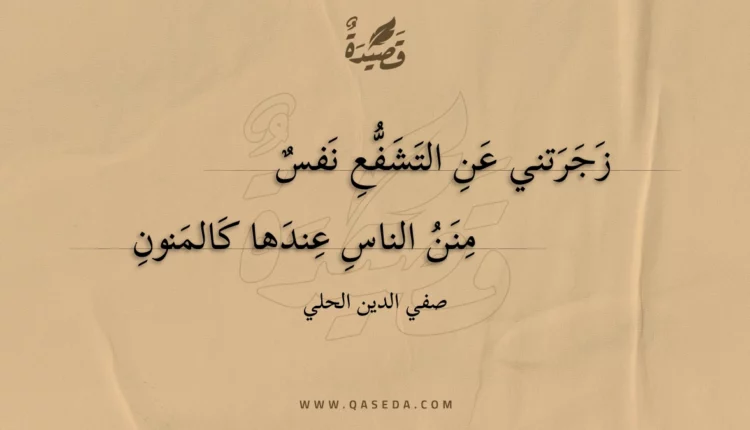 قَصِيْدَةٌ
زَجَرَتني عَنِ التَشَفُّعِ نَفسٌ
مِنَنُ الناسِ عِندَها كَالمَنونِ
صفي الدين الحلي
WWW.QASEDA.COM